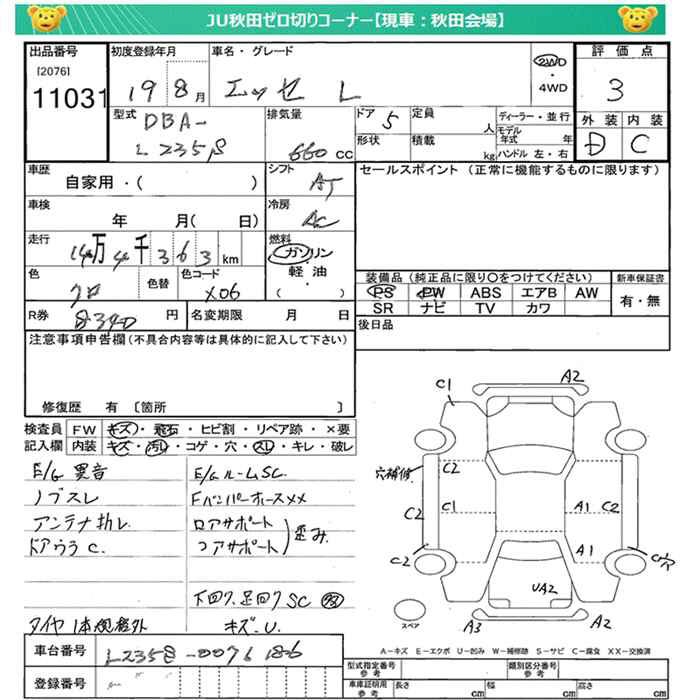 JU秋田ゼロ切りコーナー【現車：秋田会場】
出品番号
[2076]
11031
初度登録年月
19 8月
車名・グレード
エッセ L
2WD
・
4WD
評価点
3
外装 内装
D C
型式
DBA-
L235S
排気量
660 cc
ドア 5
形状
定員 人
積載 kg
ディーラー・並行
モデル年式 年
ハンドル 左・右
車歴
自家用・( )
シフト
AT
セールスポイント (正常に機能するものに限ります)
車検
年 月( 日)
冷房
AC
走行
14万4千363km
燃料
ガソリン
軽・油
( )
色
クロ
色替
色コード
X06
装備品 (純正品に限り○をつけてください)
PS PW ABS エアB AW
SR ナビ TV カワ
新車保証書
有・無
R券
8340 円
名変期限 月 日
後日品
注意事項申告欄(不具合内容等は具体的に記入して下さい)
修復歴 有 〔箇所 〕
検査員
記入欄
FW キズ・飛石・ヒビ割・リペア跡・×要
内装 キズ・汚レ・コゲ・穴・スレ・キレ・破レ
E/G 異音
ノブスレ
アンテナ折レ
ドアウラ C.
タイヤ 1本規格外
E/Gルーム SC.
Fバンパーホース××
ロアサポート
コアサポート
歪み.
下回り、足回り SC
キズ・U.
C1
A2
穴補修
C2
C1
C2
C2
A1
C2
A1
C穴
UA2
A3
A2
スペア
A−キズ E−エクボ U−凹み W−補修跡 S−サビ C−腐食 XX−交換済
車台番号
L235S-0071186
登録番号
型式指定番号
参考
類別区分番号
参考
車庫証明用
参考
長さ cm
幅 cm
高さ cm